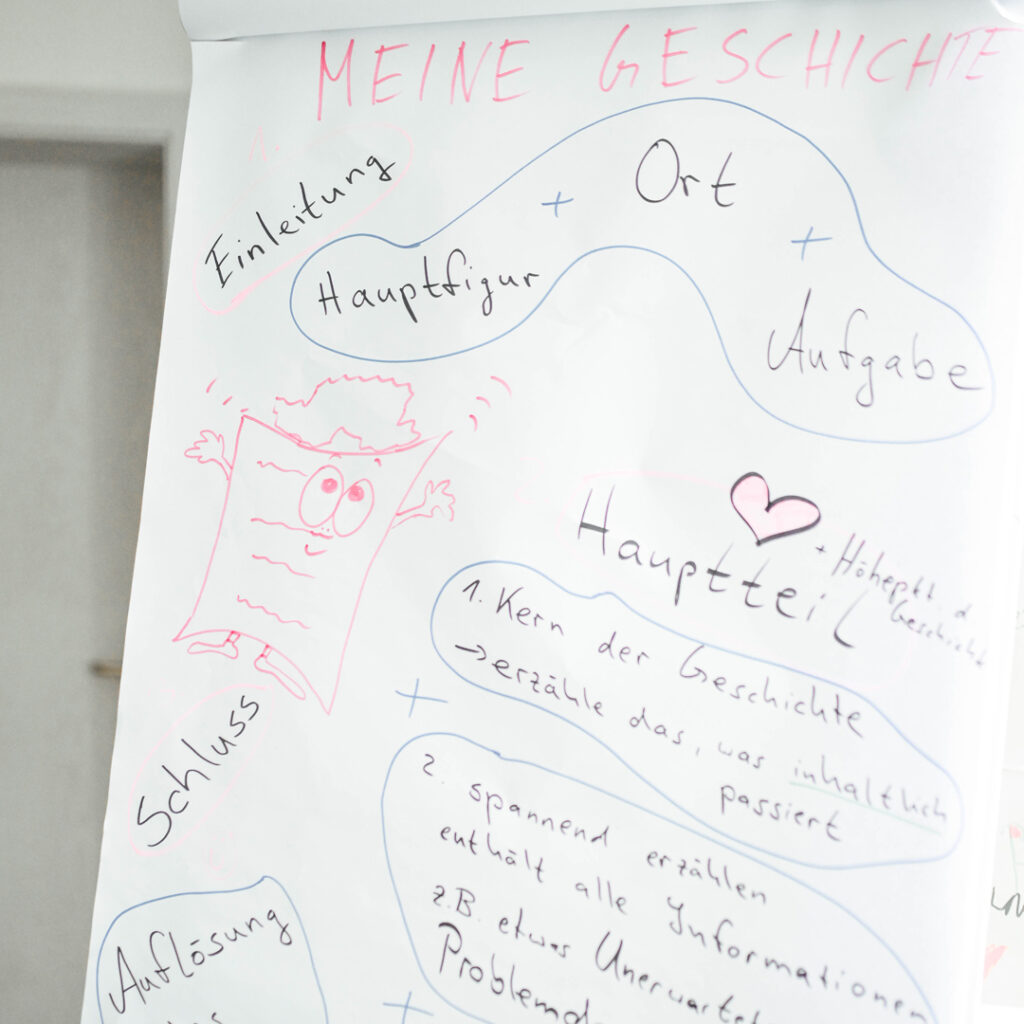 MEINE GESCHICHTE
Einleitung
Hauptfigur + Ort + Aufgabe
Hauptteil
+ Höhepkt. d.
Geschicht
1. Kern der Geschichte
→ erzähle das, was inhaltlich
passiert
+
2. spannend erzählen
enthält alle Informationen
z.B. etwas Unerwartet
Problemd
+
Schluss
Auflösung